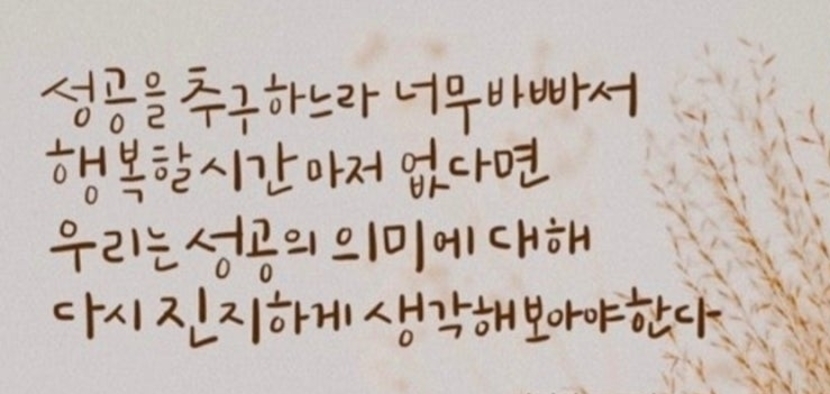 성공을 추구하느라 너무 바빠서
행복할 시간마저 없다면
우리는 성공의 의미에 대해
다시 진지하게 생각해보아야한다